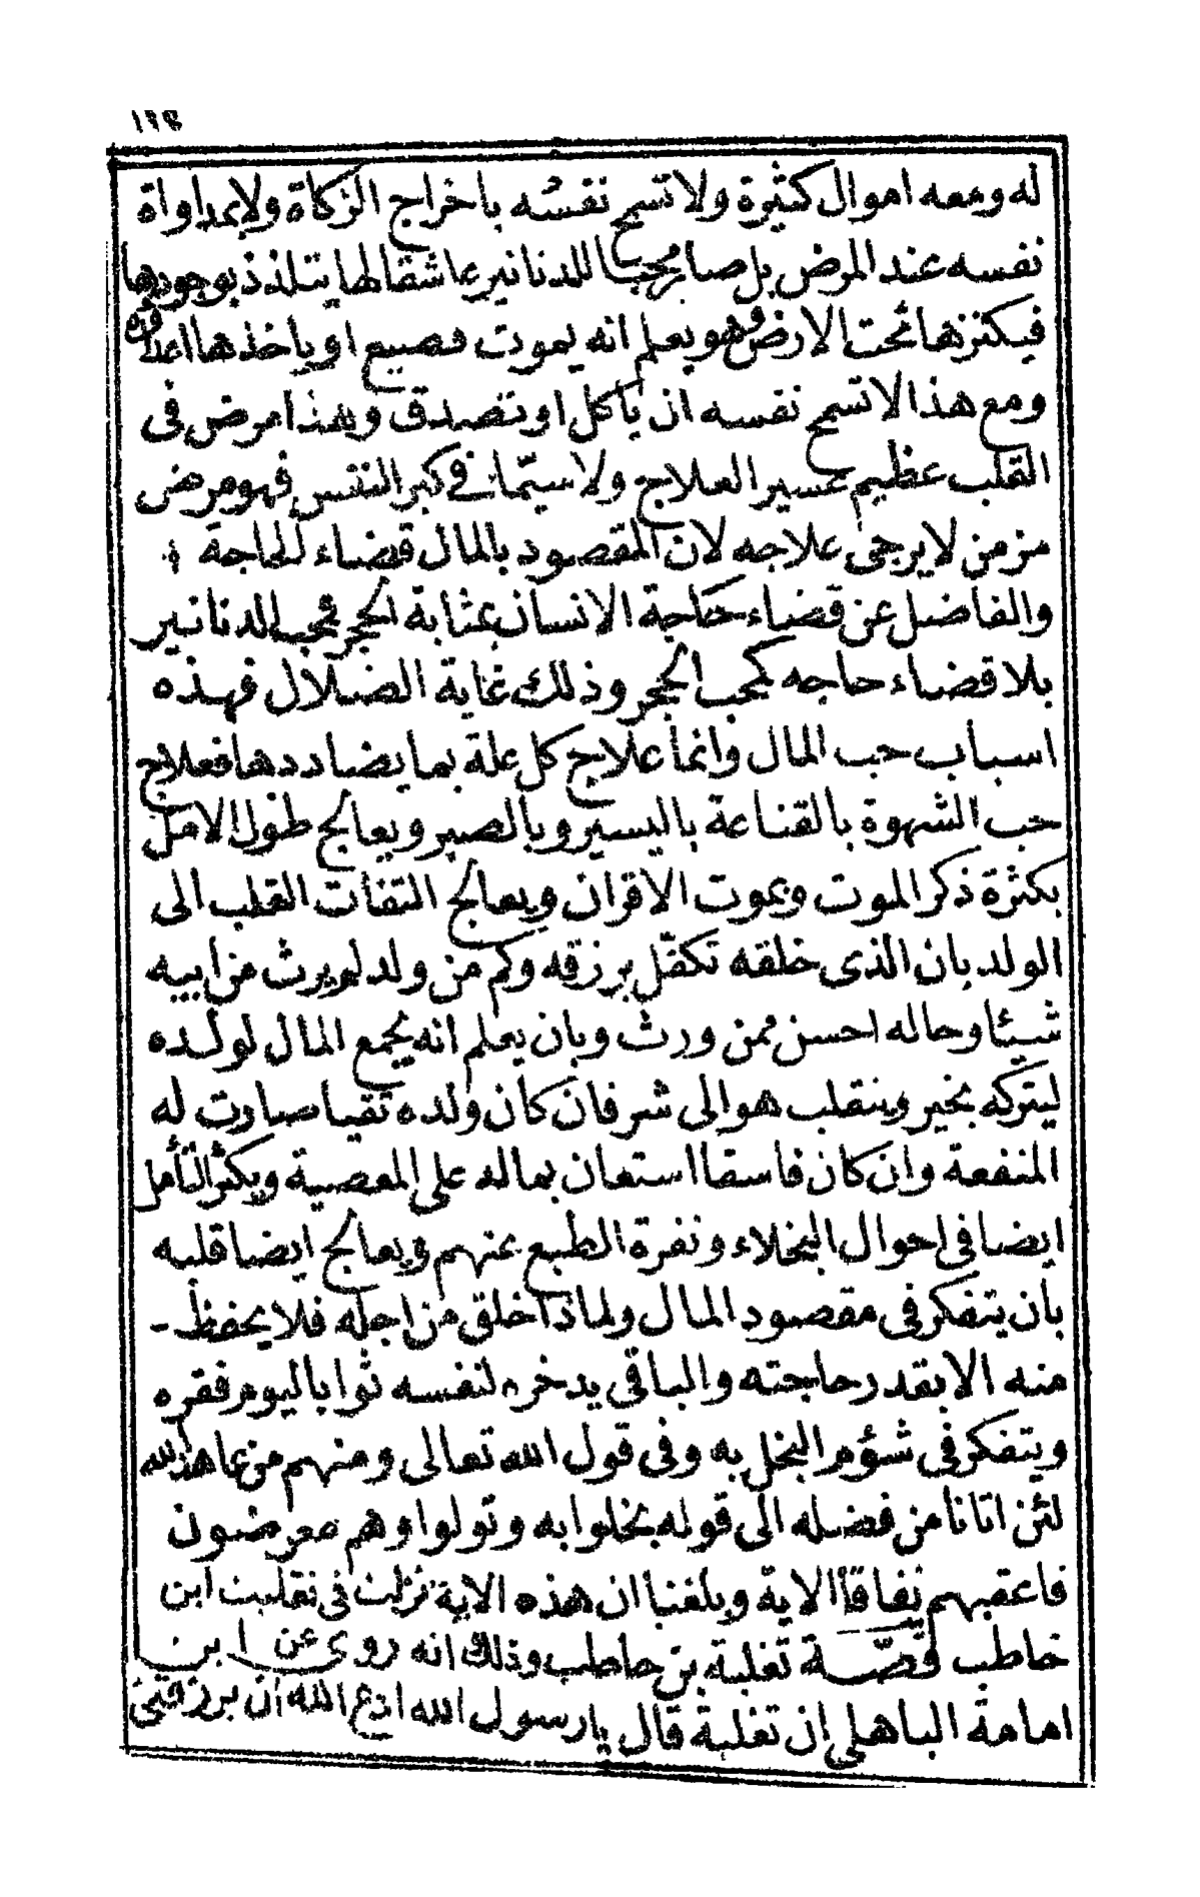 ١٦٤
له ومعه اموال كثيرة ولا تسمح نفسُه باخراج الزكاة ولا بمداواة
نفسه عند المرض بل صار محبا للدنانير عاشقا لها يتلذذ بوجودها
فيكنزها تحت الارض وهو يعلم انه يموت فيضيع او ياخذها اعداؤه
ومع هذا لا تسمح نفسه ان يأكل او يتصدق وهذا مرض فى
القلب عظيم عسير العلاج ولا سيّما فى كبر السن فهو مرض
مزمن لا يرجى علاجه لان المقصود بالمال قضاء للحاجة
والفاضل عن قضاء حاجة الانسان بمثابة الحجر فمحب الدنانير
بلا قضاء حاجه كمحب الحجر وذلك غاية الضلال فهذه
اسباب حب المال وانما علاج كل علة بما يضاددها فعلاج
حب الشهوة بالقناعة باليسير وبالصبر ويعالج طول الامل
بكثرة ذكر الموت وبموت الاقران ويعالج التفات القلب الى
الولد بان الذى خلقه تكفّل برزقه وكم من ولد لم يرث من ابيه
شيئا وحاله احسن ممن ورث وبان يعلم انه يجمع المال لولده
ليتركه بخير وينقلب هو الى شر فان كان ولده تقيا صارت له
المنفعة وان كان فاسقا استعان بماله على المعصية ويكثر التأمل
ايضا فى احوال البخلاء ونفرة الطبع عنهم ويعالج ايضا قلبه
بان يتفكر فى مقصود المال ولماذا خلق من اجله فلا يحفظ -
منه الا بقدر حاجته والباقى يدخره لنفسه ثوابا ليوم فقره
ويتفكر فى شؤم البخل به وفى قول الله تعالى ومنهم من عاهد الله
لئن اتانا من فضله الى قوله بخلوا به وتولوا وهم معرضون
فاعقبهم نفاقا الاية وبلغنا ان هذه الاية نزلت فى تغلبت ابن
خاطب قصّة تغلبة بن حاطب وذلك انه روى عن ابن
امامة الباهلى ان تغلبة قال يا رسول الله ادع الله ان يرزقنى